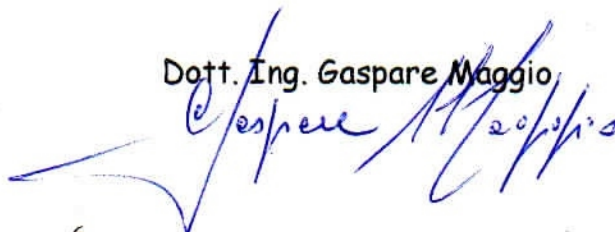 Dott. Ing. Gaspare Maggio
Gaspare Maggio